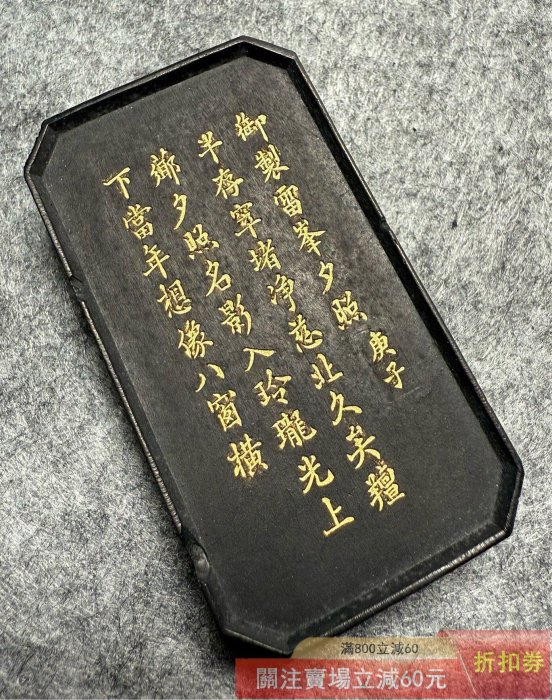 御製雷峯夕照 庚子
半存窣堵净慈北久矣羶
薌夕照名影入玲瓏光上
下當年想像八窗橫
滿800立減60
關注賣場立減60元
折扣券